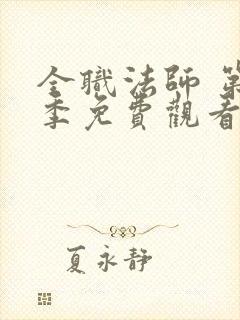 全職法師 第
季免費觀看
夏永靜